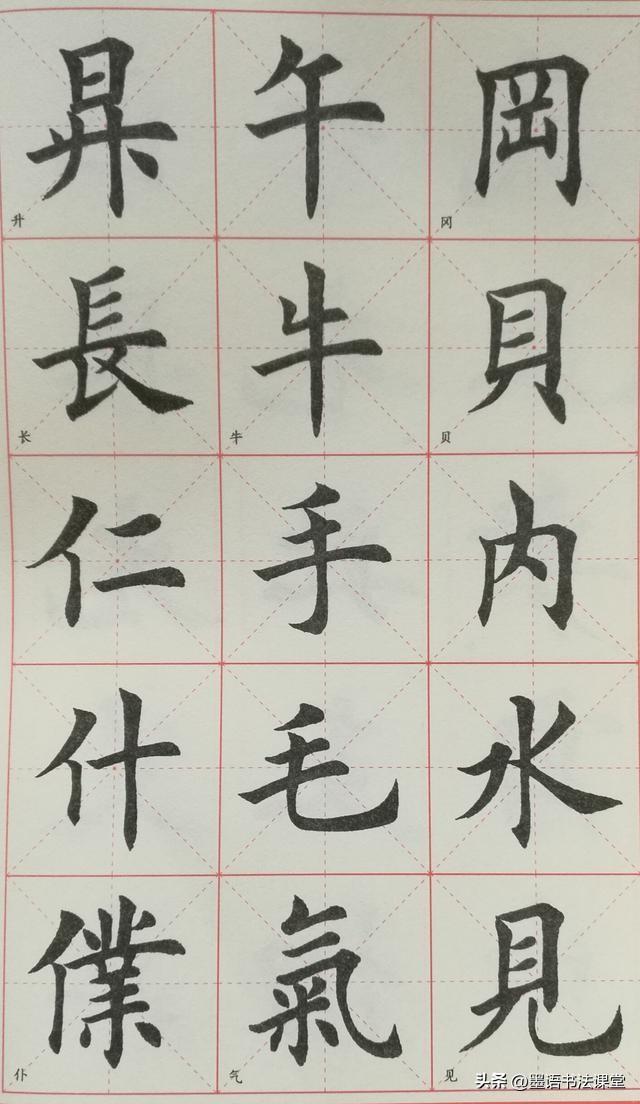 岡 冈 貝 贝 内 水 見 见
午 牛 牛 手 毛 氣 气
昇 升 長 长 仁 什 僕 仆
头条 @墨语书法课堂